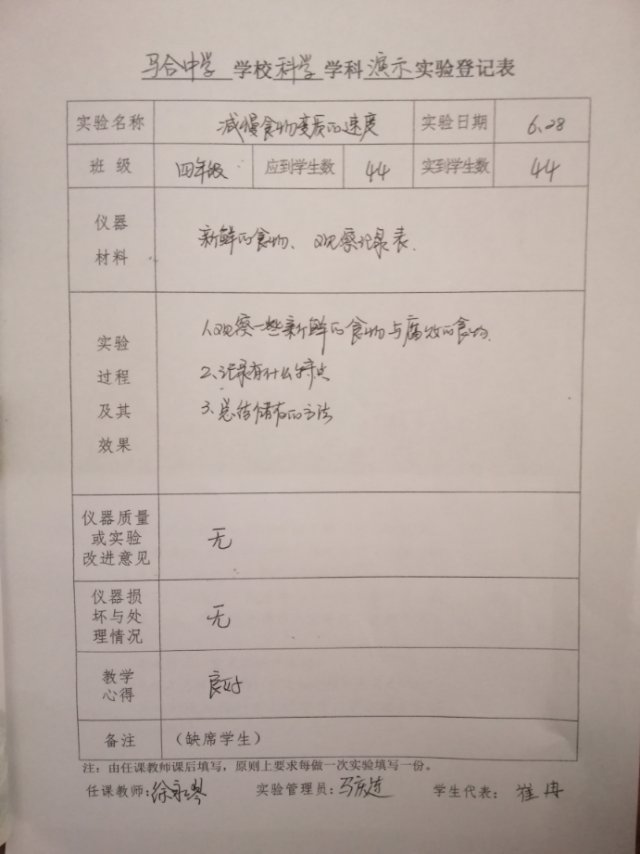 马合中学 学校 科学 学科 演示 实验登记表
实验名称 减慢食物变质的速度 实验日期 6.28
班 级 四年级 应到学生数 44 实到学生数 44
仪器
材料
新鲜的食物、观察记录表.
实验
过程
及其
效果
1.观察一些新鲜的食物与腐败的食物.
2.记录有什么特点
3.总结储存的方法
仪器质量
或实验
改进意见
无
仪器损
坏与处
理情况
无
教学
心得
良好
备注 （缺席学生）
注：由任课教师课后填写，原则上要求每做一次实验填写一份。
任课教师：徐 实验管理员：马 学生代表： 冉